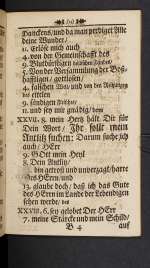 Danckens, und da man prediget Alle
deine Wunder /
11. Erlöse mich auch
4. von der Gemeinschafft des
9. Blutdürstigen
5. Von der Versammlung der Boß-
hafftigen / gottlosen /
4. falschen
des eiteln
9. sündigen
11. und sey mir gnädig /
XXVII. 8. mein Hertz hält Dir für
Dein Wort / Ihr sollt mein
Antlitz suchen: Darum suche ich
auch / HErr
9. GOtt mein Heyl
8. Dein Antlitz /
bin getrost und unverzagt / harre
des HErrn / und
13. glaube doch / daß ich das Gute
des HErrn im Lande der Lebendigen
sehen werde /
XXVIII. 6. sey gelobet Der HErr
7. meine Stärcke und mein Schild /
B 4 auf